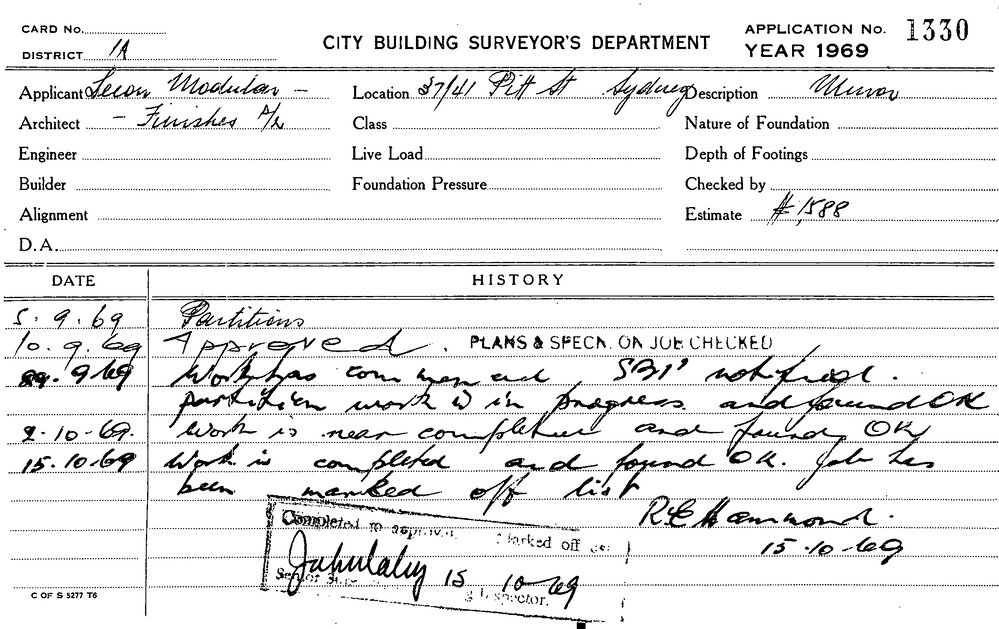 CARD No.
DISTRICT 1A
CITY BUILDING SURVEYOR'S DEPARTMENT
APPLICATION No. 1330
YEAR 1969
Applicant Modular -
Location 37/41 Pitt St Sydney
Description Minor
Architect - Finishes P/L
Class
Nature of Foundation
Engineer
Live Load
Depth of Footings
Builder
Foundation Pressure
Checked by
Alignment
Estimate $1,588
D.A.
DATE HISTORY
5.9.69 Partitions
10.9.69 Approved. PLANS & SPECN. ON JOB CHECKED
29.9.69 Work has commenced notified.
partition work is in progress and found OK
2-10-69. Work is near completion and found OK
15.10.69 Work is completed and found OK. Job has
been marked off list
R E Hammond.
15.10.69
Completed to approved Marked off
15 10-69
Inspector.
C OF S 5277 T6